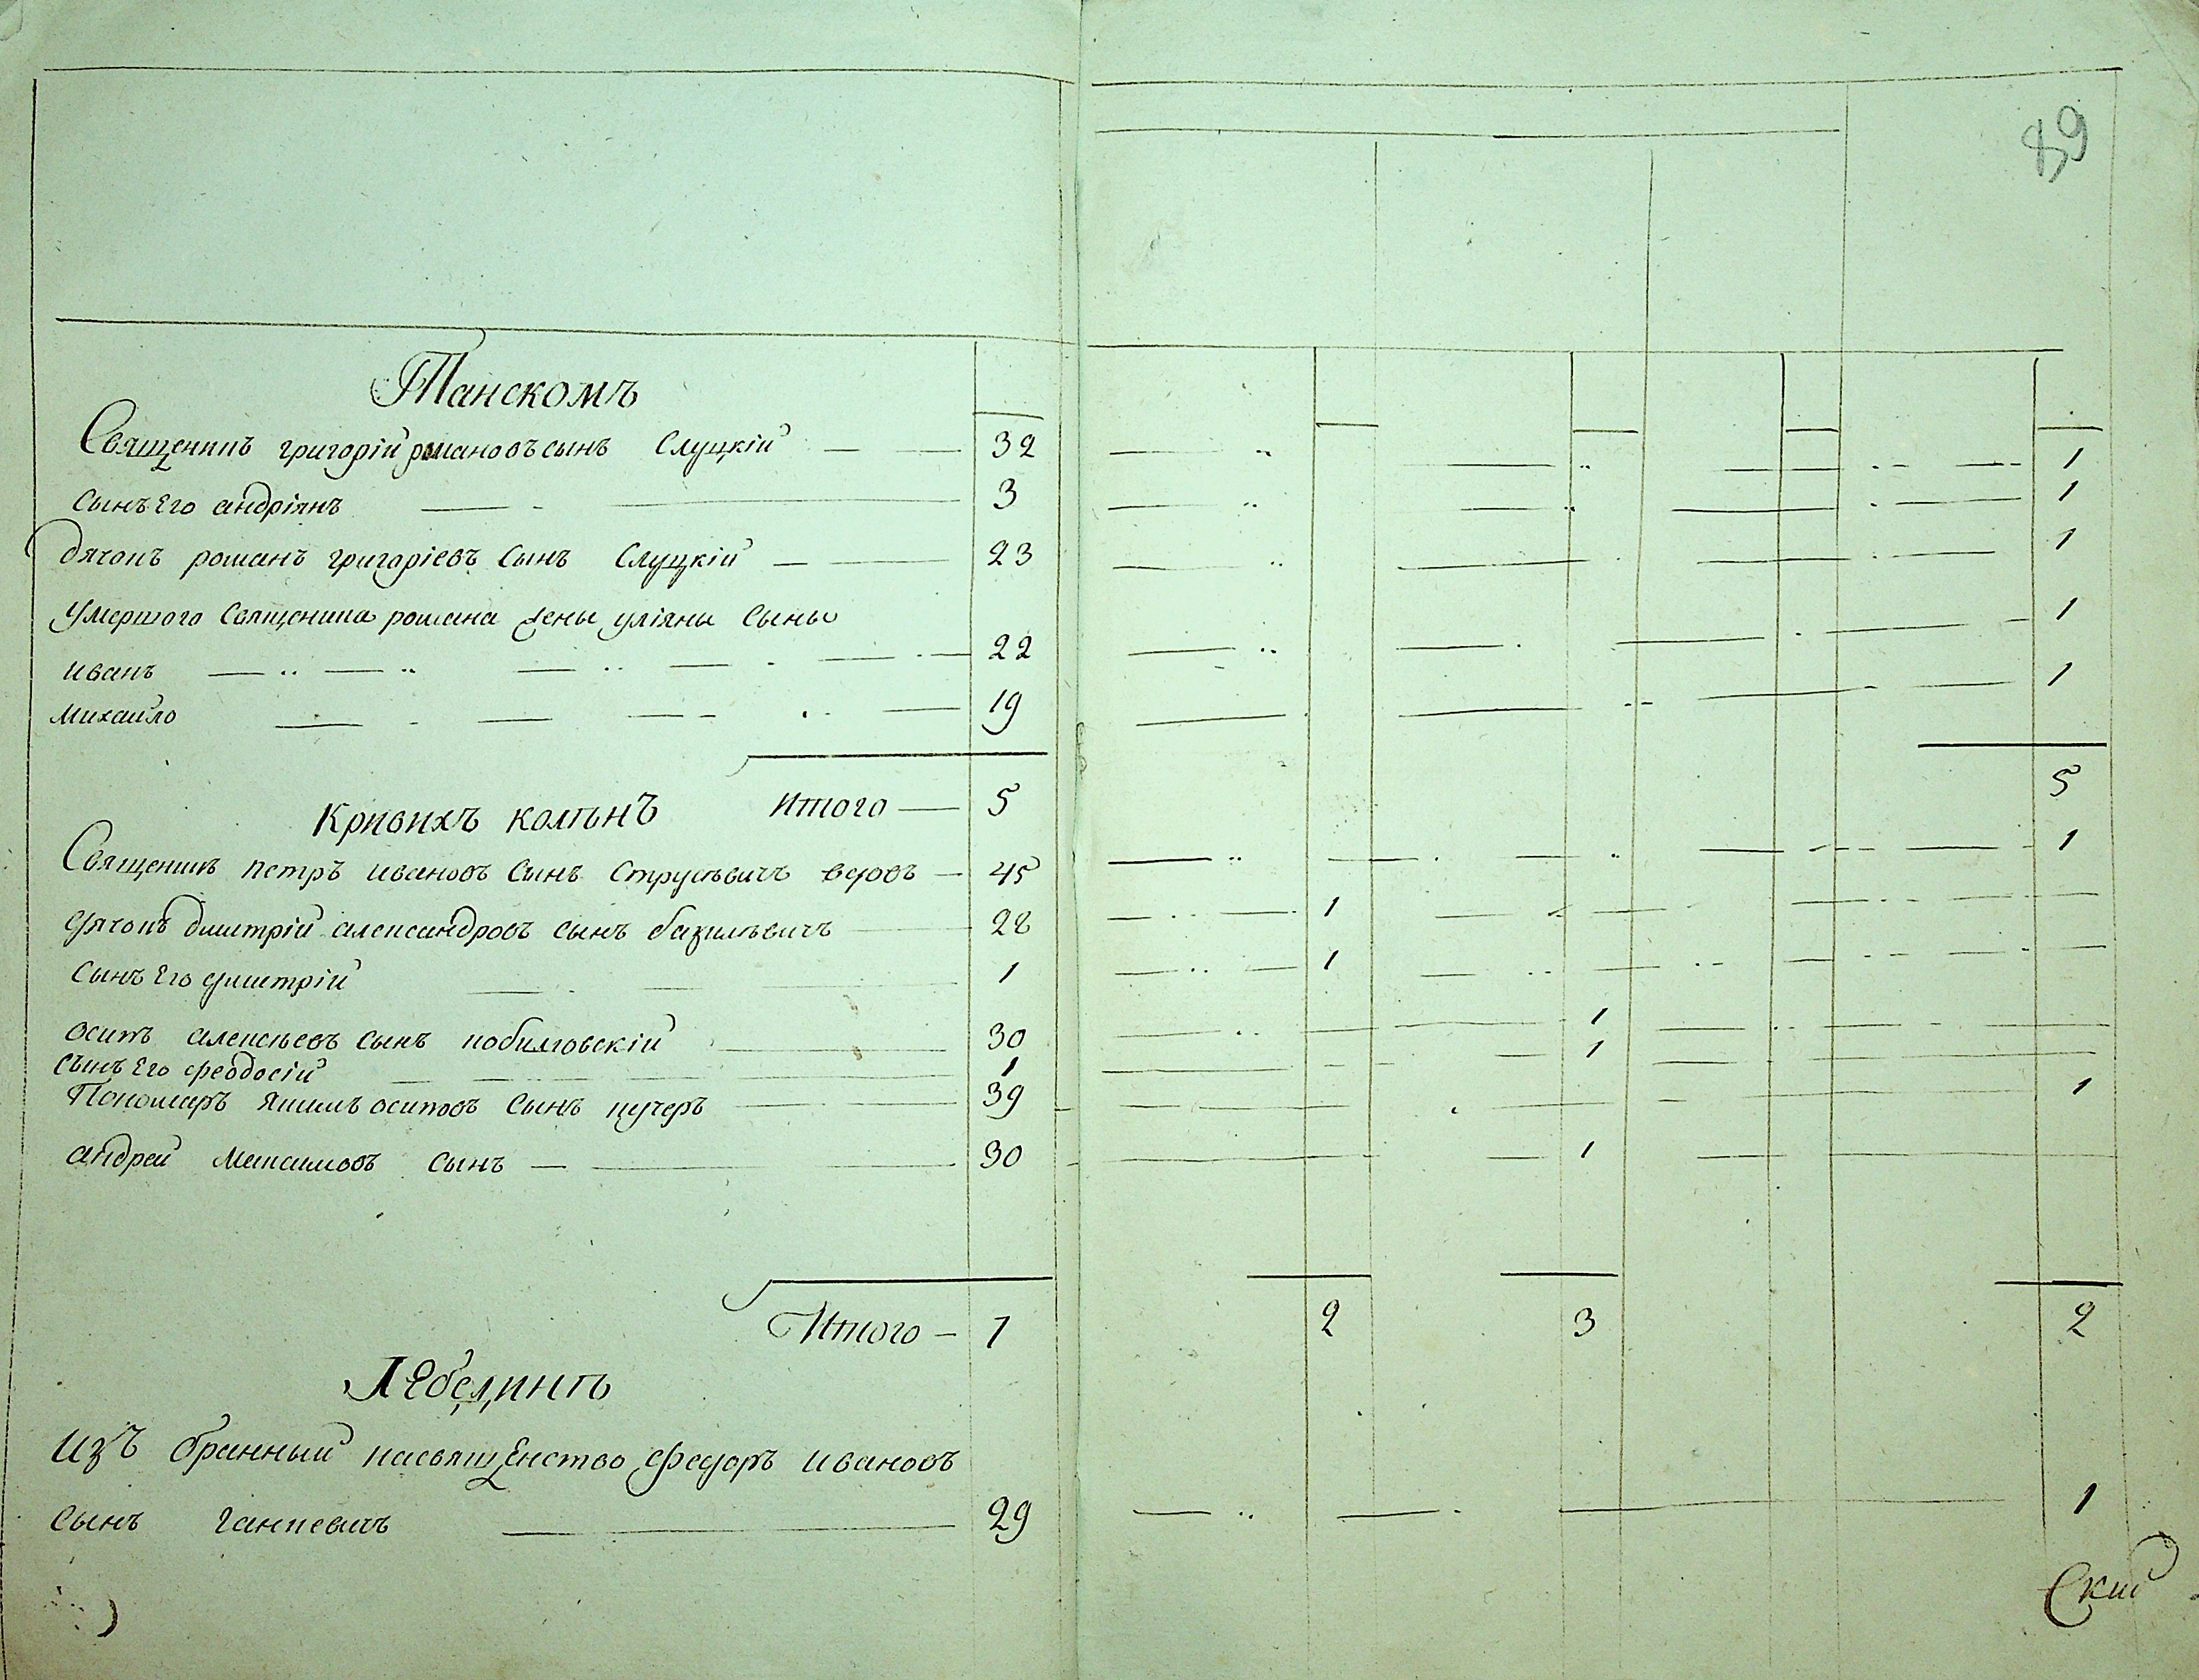 89
Танскомъ
Священикъ григорій романовъ сынъ Слуцкій — — 32 1
сынъ его андріянъ — 3 1
дячокъ романъ григоріевъ сынъ Слуцкій — 23 1
умершого священика романа жены уліяны сыны
иванъ — 22 1
михайло — 19 1
Итого — 5 5
Кривихъ колѣнъ
Священикъ петръ ивановъ сынъ Струсѣвичъ вдовъ — 45 1
дячокъ дмитрій александровъ сынъ базилѣвичъ 28 1
сынъ его димитрій 1 1
осипъ алексѣевъ сынъ 30 1
сынъ его феодосій 1 1
Пономаръ якимъ осиповъ сынъ кучеръ 39 1
андрей максимовъ сынъ — 30 1
Итого — 7 2 3 2
Лебединѣ
изъ бранный насвященство федоръ ивановъ
сынъ ганкевичъ 29 1
Ский